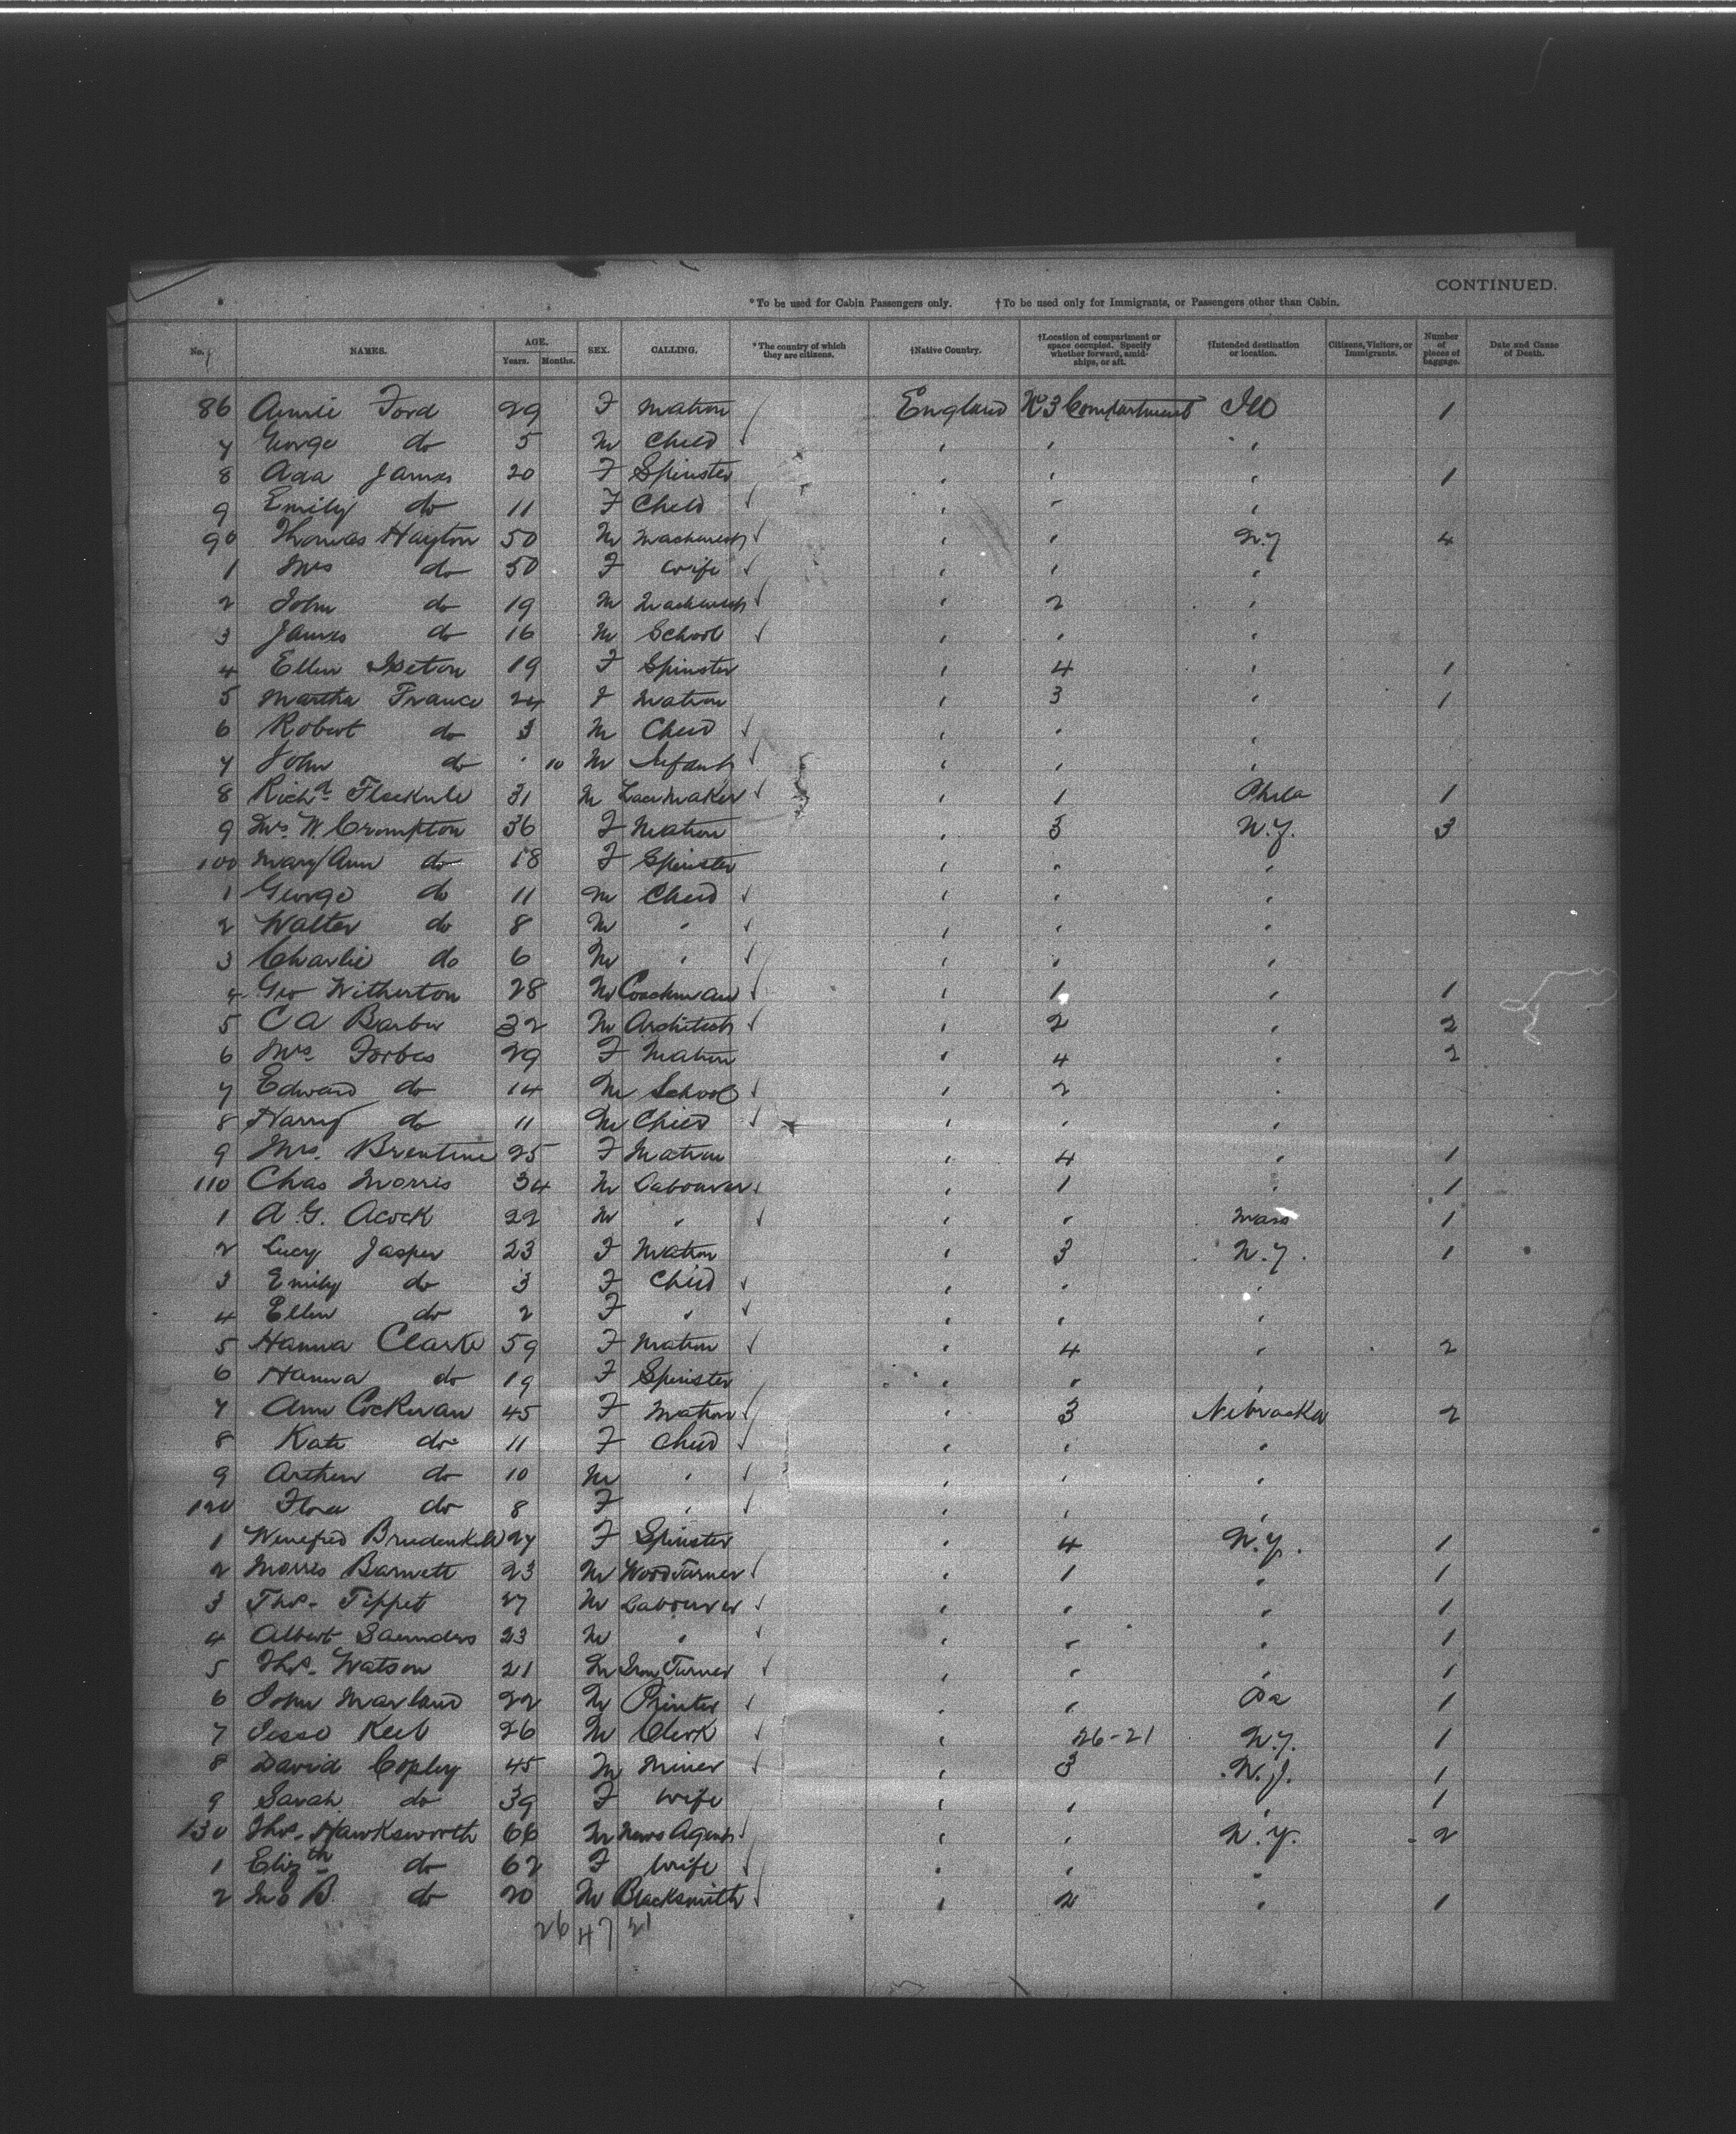 CONTINUED.
*To be used for Cabin Passengers only. †To be used only for Immigrants, or Passengers other than Cabin.
No. NAMES. AGE. Years. Months. SEX. CALLING. *The country of which they are citizens. †Native Country. †Location of compartment or space occupied. Specify whether forward, amidships, or aft. †Intended destination or location. Citizens, Visitors, or Immigrants. Number of pieces of baggage. Date and Cause of Death.
86 Annie Ford 29 F Matron England No 3 Compartment Ill 1
7 George do 5 M Child " " "
8 Ada James 20 F Spinster " " " 1
9 Emily do 11 F Child " " "
90 Thomas Hayton 50 M Machinist " " N.Y 4
1 Mrs do 50 F Wife " " "
2 John do 19 M Machinist " 2 "
3 James do 16 M School " " "
4 Ellen 19 F Spinster " 4 " 1
5 Martha France 24 F Matron " 3 " 1
6 Robert do 3 M Child " " "
7 John do " 10 M Infant " " "
8 Richd 31 M Lace Maker " 1 Phila 1
9 Mrs W Crompton 36 F Matron " 3 N.Y. 3
100 Mary Ann do 18 F Spinster " " "
1 George do 11 M Child " " "
2 Walter do 8 M " " " "
3 Charlie do 6 M " " " "
4 Geo Witherton 28 M Coachman " 1 " 1
5 C A Barber 32 M Architect " 2 " 2
6 Mrs Forbes 29 F Matron " 4 " 2
7 Edward do 14 M School " 2 "
8 Harry do 11 M Child " " "
9 Mrs. Brentine 25 F Matron " 4 " 1
110 Chas Morris 34 M Labourer " 1 " 1
1 A. G. Acock 22 M " " " Mass 1
2 Lucy Jasper 23 F Matron " 3 N.Y. 1
3 Emily do 3 F Child " " "
4 Ellen do 2 F " " " "
5 Hanna Clarke 59 F Matron " 4 " 2
6 Hanna do 19 F Spinster " " "
7 Ann Cockman 45 F Matron " 3 Nebraska 2
8 Kate do 11 F Child " " "
9 Arthur do 10 M " " " "
120 Flora do 8 F " " " "
1 Winefred 27 F Spinster " 4 N.Y. 1
2 Morris Barnett 23 M Wood Turner " 1 " 1
3 Thos. Tippet 27 M Labourer " " " 1
4 Albert Saunders 23 M " " " " 1
5 Thos. Watson 21 M Iron Turner " " " 1
6 John Marland 22 M Printer " " Pa 1
7 Jesse Keeb 26 M Clerk " 26-21 N.Y. 1
8 David Copley 45 M Miner " 3 N.J. 1
9 Sarah do 39 F Wife " " " 1
130 Thos. Hawksworth 66 M News Agent " " N.Y. 2
1 Elizth do 62 F Wife " " "
2 Jno B. do 20 M Blacksmith " 2 " 1
26 47 21